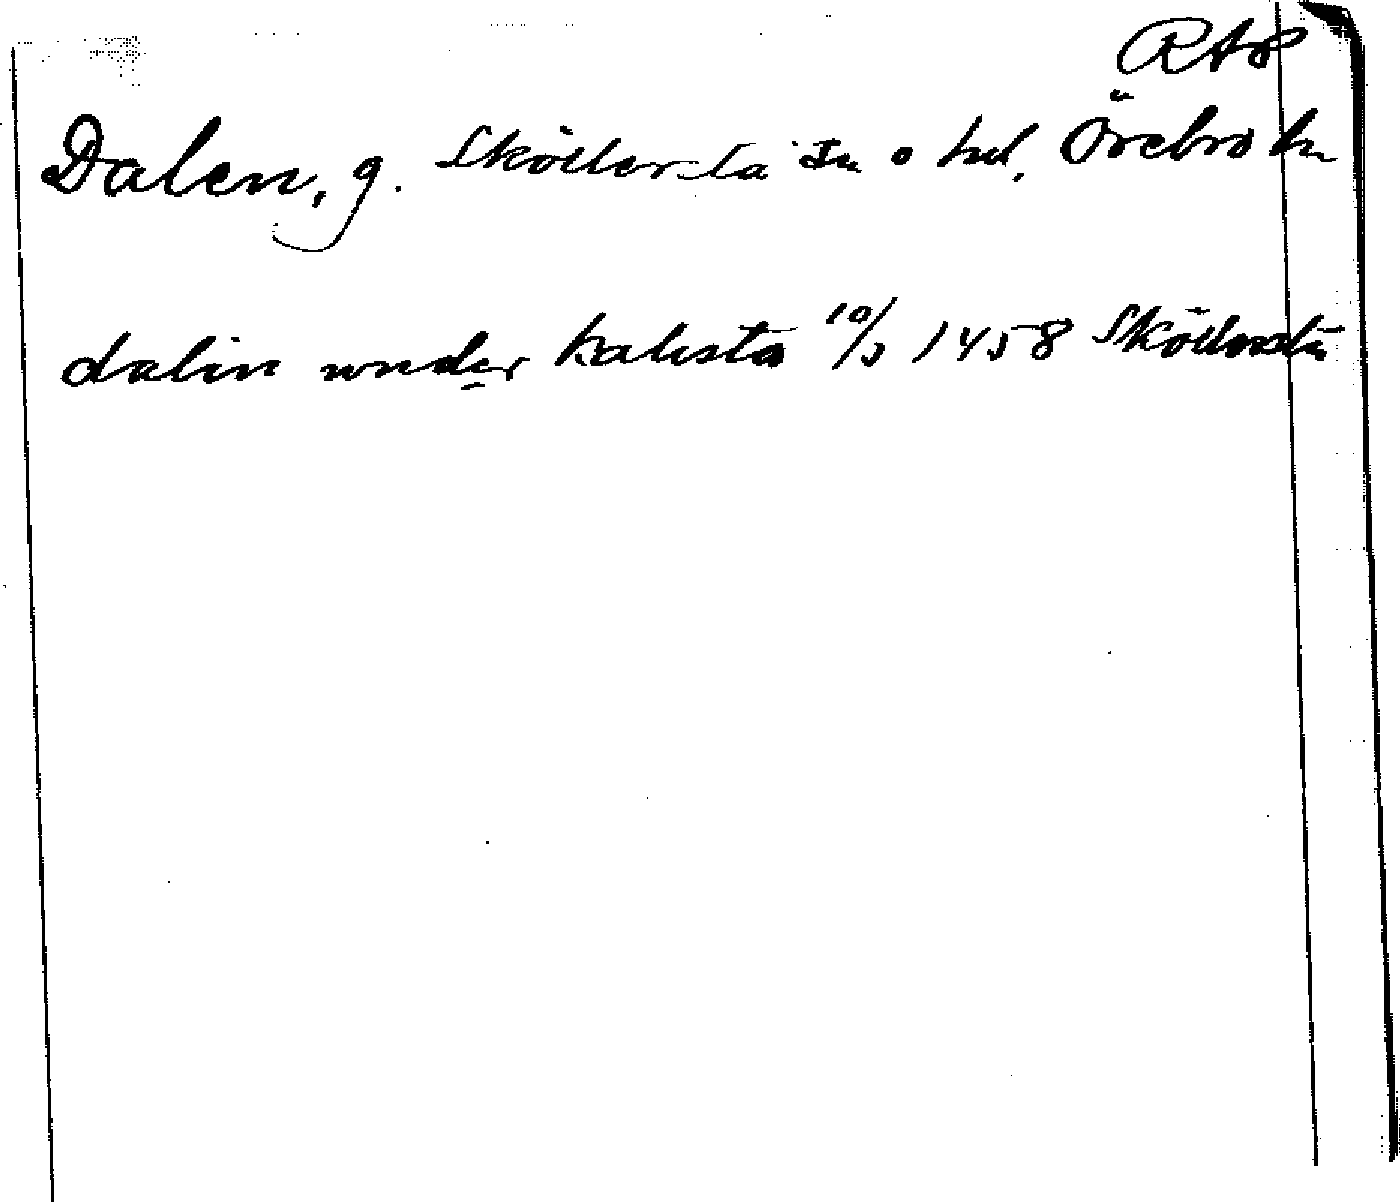 RAP
Dalen, g. Sköllersta sn o hd, Örebro ln
dalin wnder halista 10/3 1458 Sköllersta